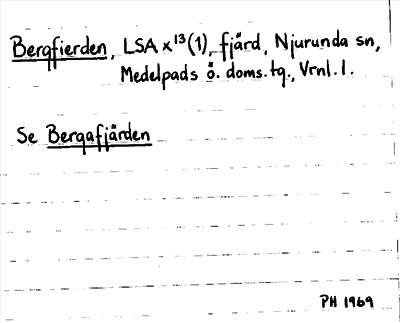 Bergfierden, LSA x¹³(1), fjärd, Njurunda sn,
Medelpads ö. doms.tg., Vrnl. l.
Se Bergafjärden
PH 1969